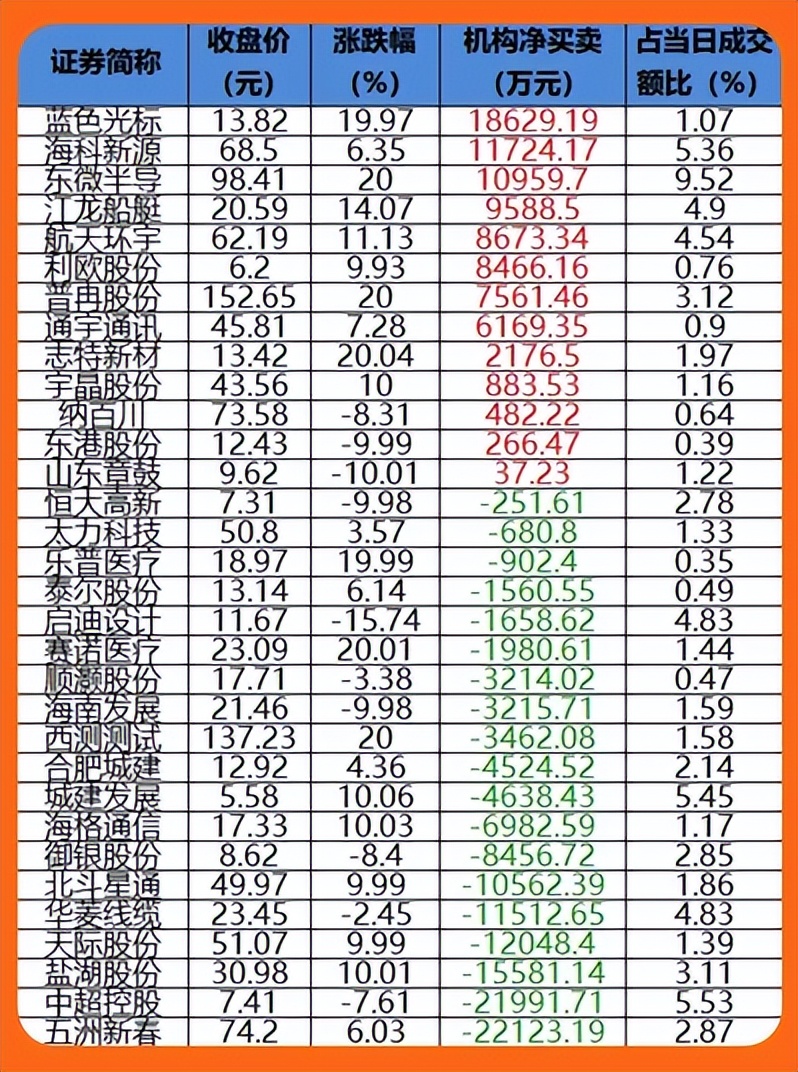 证券简称 收盘价（元） 涨跌幅（%） 机构净买卖（万元） 占当日成交额比（%）
蓝色光标 13.82 19.97 18629.19 1.07
海科新源 68.5 6.35 11724.17 5.36
东微半导 98.41 20 10959.7 9.52
江龙船艇 20.59 14.07 9588.5 4.9
航天环宇 62.19 11.13 8673.34 4.54
利欧股份 6.2 9.93 8466.16 0.76
普冉股份 152.65 20 7561.46 3.12
通宇通讯 45.81 7.28 6169.35 0.9
志特新材 13.42 20.04 2176.5 1.97
宇晶股份 43.56 10 883.53 1.16
纳百川 73.58 -8.31 482.22 0.64
东港股份 12.43 -9.99 266.47 0.39
山东章鼓 9.62 -10.01 37.23 1.22
恒大高新 7.31 -9.98 -251.61 2.78
太力科技 50.8 3.57 -680.8 1.33
乐普医疗 18.97 19.99 -902.4 0.35
泰尔股份 13.14 6.14 -1560.55 0.49
启迪设计 11.67 -15.74 -1658.62 4.83
赛诺医疗 23.09 20.01 -1980.61 1.44
顺灏股份 17.71 -3.38 -3214.02 0.47
海南发展 21.46 -9.98 -3215.71 1.59
西测测试 137.23 20 -3462.08 1.58
合肥城建 12.92 4.36 -4524.52 2.14
城建发展 5.58 10.06 -4638.43 5.45
海格通信 17.33 10.03 -6982.59 1.17
御银股份 8.62 -8.4 -8456.72 2.85
北斗星通 49.97 9.99 -10562.39 1.86
华菱线缆 23.45 -2.45 -11512.65 4.83
天际股份 51.07 9.99 -12048.4 1.39
盐湖股份 30.98 10.01 -15581.14 3.11
中超控股 7.41 -7.61 -21991.71 5.53
五洲新春 74.2 6.03 -22123.19 2.87